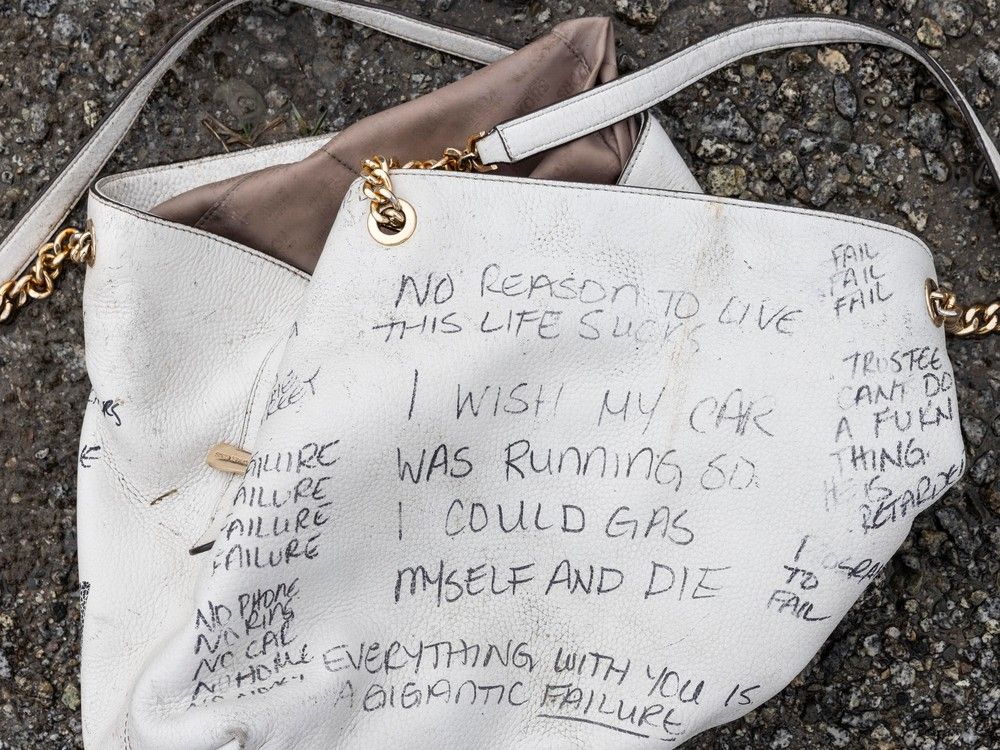 NO REASON TO LIVE
THIS LIFE SUCKS
I WISH MY CAR
WAS RUNNING SO
I COULD GAS
MYSELF AND DIE
EVERYTHING WITH YOU IS
A GIGANTIC FAILURE
FAIL
FAIL
FAIL
TRUSTEE
CANT DO
A FUKN
THING.
IS
RETARDE
I
TO
FAIL
AILURE
AILURE
FAILURE
FAILURE
NO PHONE
NO RING
NO CAR
NO HOME